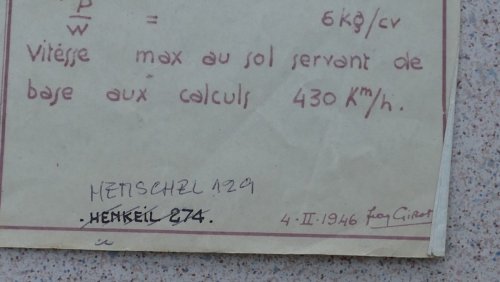 P/W = 6 kg/cv
Vitésse max au sol servant de
base aux calculs 430 Km/h.
HENSCHEL 129
HENKEIL 274.
4-II-1946